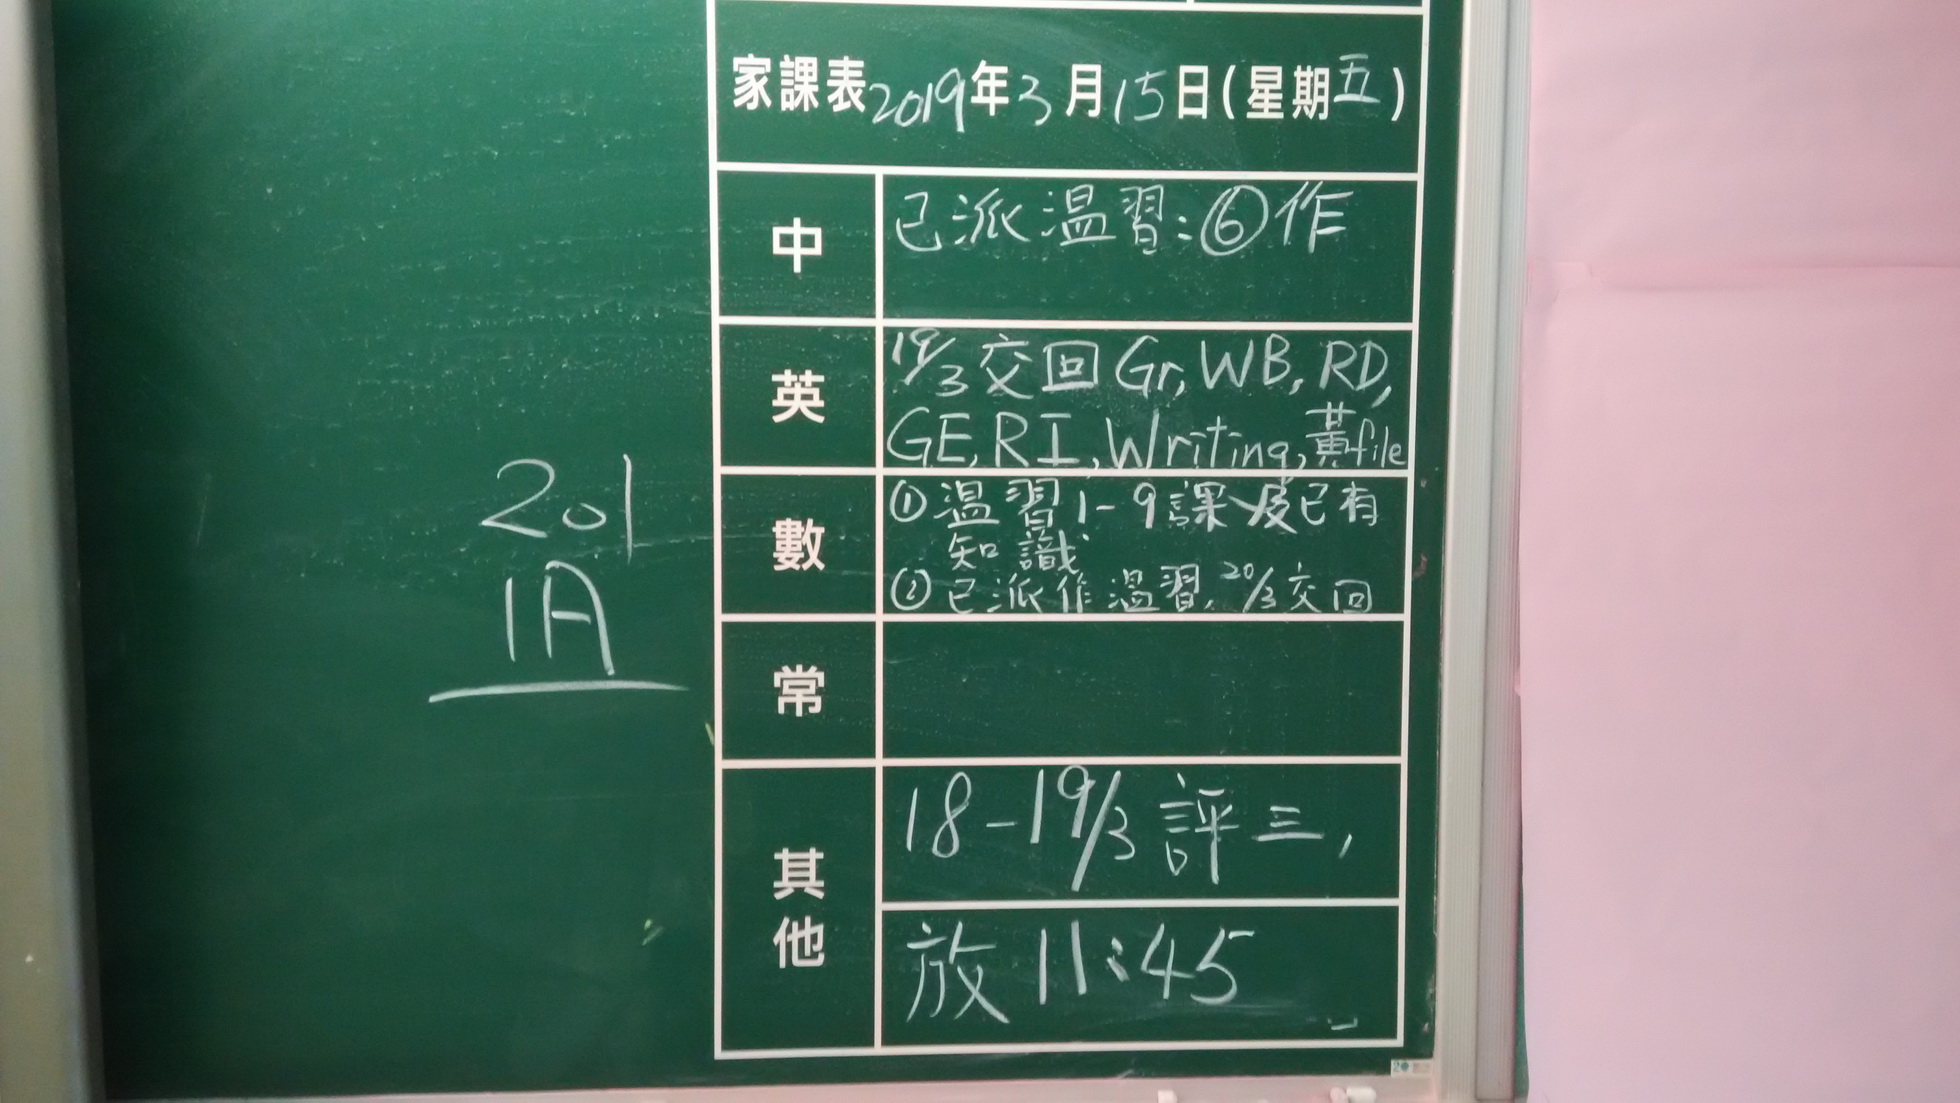 家課表2019年3月15日(星期五)
中
已派温習:⑥作
英
19/3交回Gr, WB, RD,
GE, RI, Writing, 黃file
數
①温習1-9課及已有
知識
②已派作温習, 20/3交回
常
其他
18-19/3評三,
放11:45
201
1A